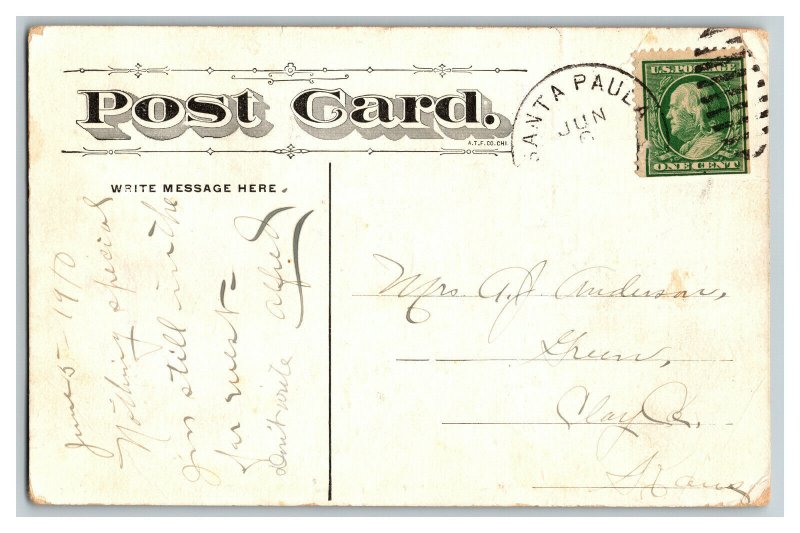 Post Card.
A.T.F. CO. CHI.
SANTA PAULA
JUN
6
U.S. POSTAGE
ONE CENT
WRITE MESSAGE HERE.
June 5 - 1910
Nothing special
I'm still in the
far west -
Don't write Alfred
Mrs. A. J. Anderson,
Green,
Clay Co.
Kans